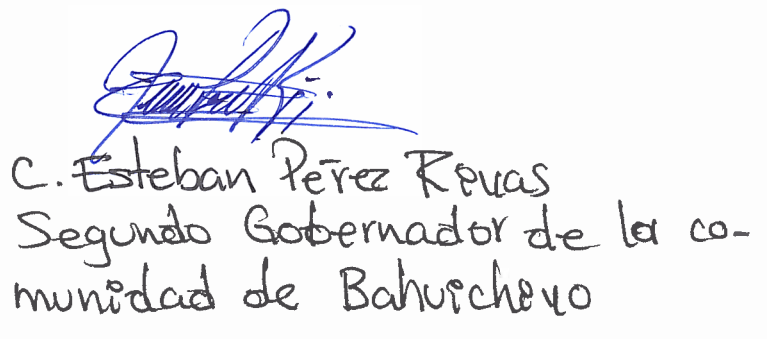 C. Esteban Pérez Rivas
Segundo Gobernador de la co-
munidad de Bahuichivo